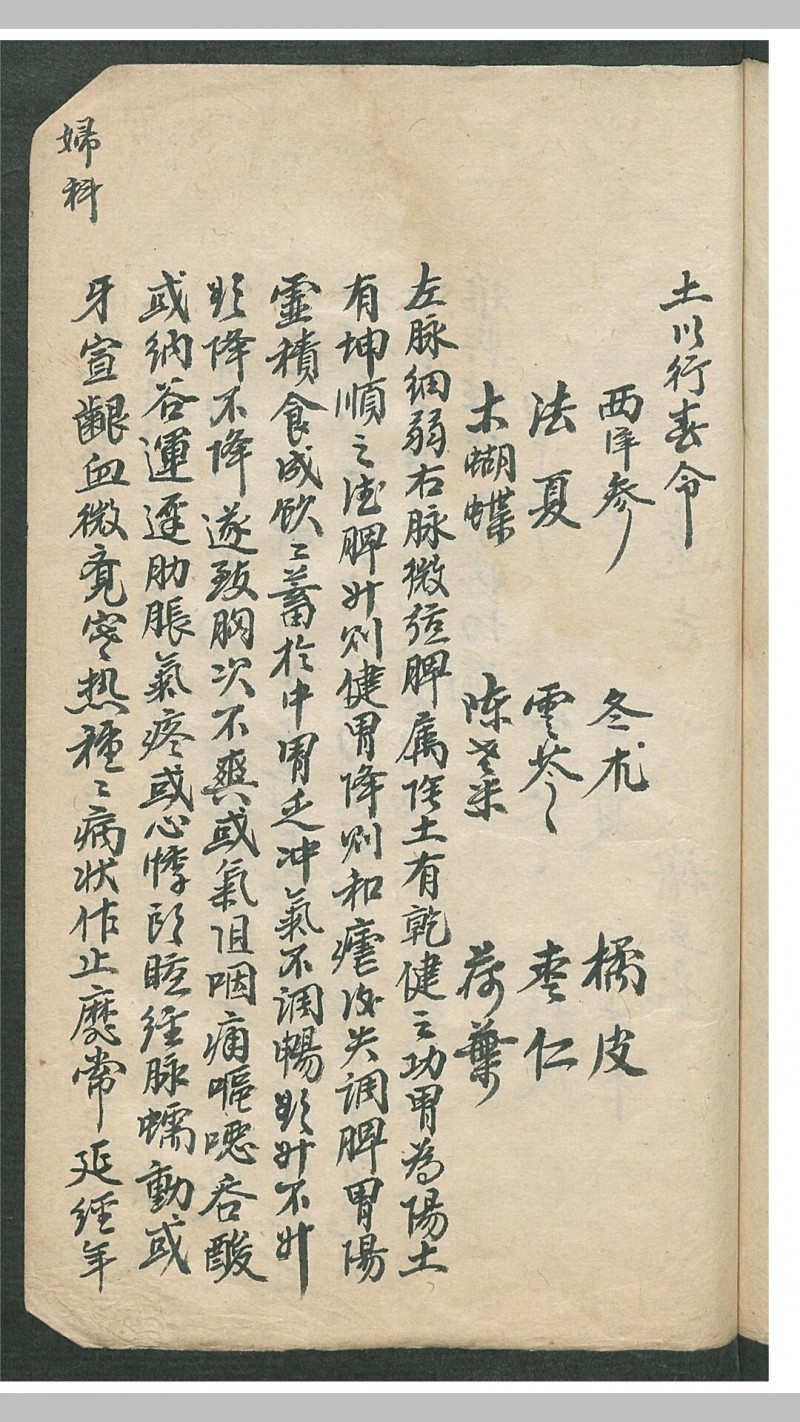 土以行春令
西洋參 冬朮 橘皮
法夏 雲苓 枣仁
木蝴蝶 陈老米 荷葉
左脉細弱右脉微弦脾属陰土有乾健之功胃為陽土
有坤順之德脾升則健胃降則和瘧後失調脾胃陽
靈積食成飲〻蓄於中胃乏冲氣不調暢欲升不升
欲降不降遂致胸次不爽或氣阻咽痛嘔噁吞酸
或納谷運遲肋脹氣疼或心悸頭眩經脉蠕動或
牙宣齦血微覺寒熱種〻病状作止靡常延經年
婦科